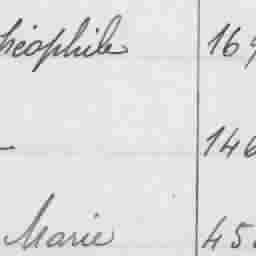 héophile 16
— 146
Marie 45